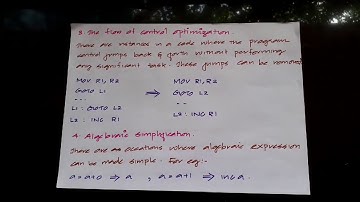 3. The flow of control optimization.
There are instances in a code where the program
control jumps back & forth without performing
any significant task. These jumps can be removed
MOV R1, R2 MOV R1, R2
GOTO L1 ⇒ GOTO L2
--- ---
L1 : GOTO L2 L2 : INC R1
L2 : INC R1
4. Algebraic Simplification.
There are occations where algebraic expression
can be made simple. For eg:-
a = a+0 ⇒ a , a = a+1 ⇒ INC a.